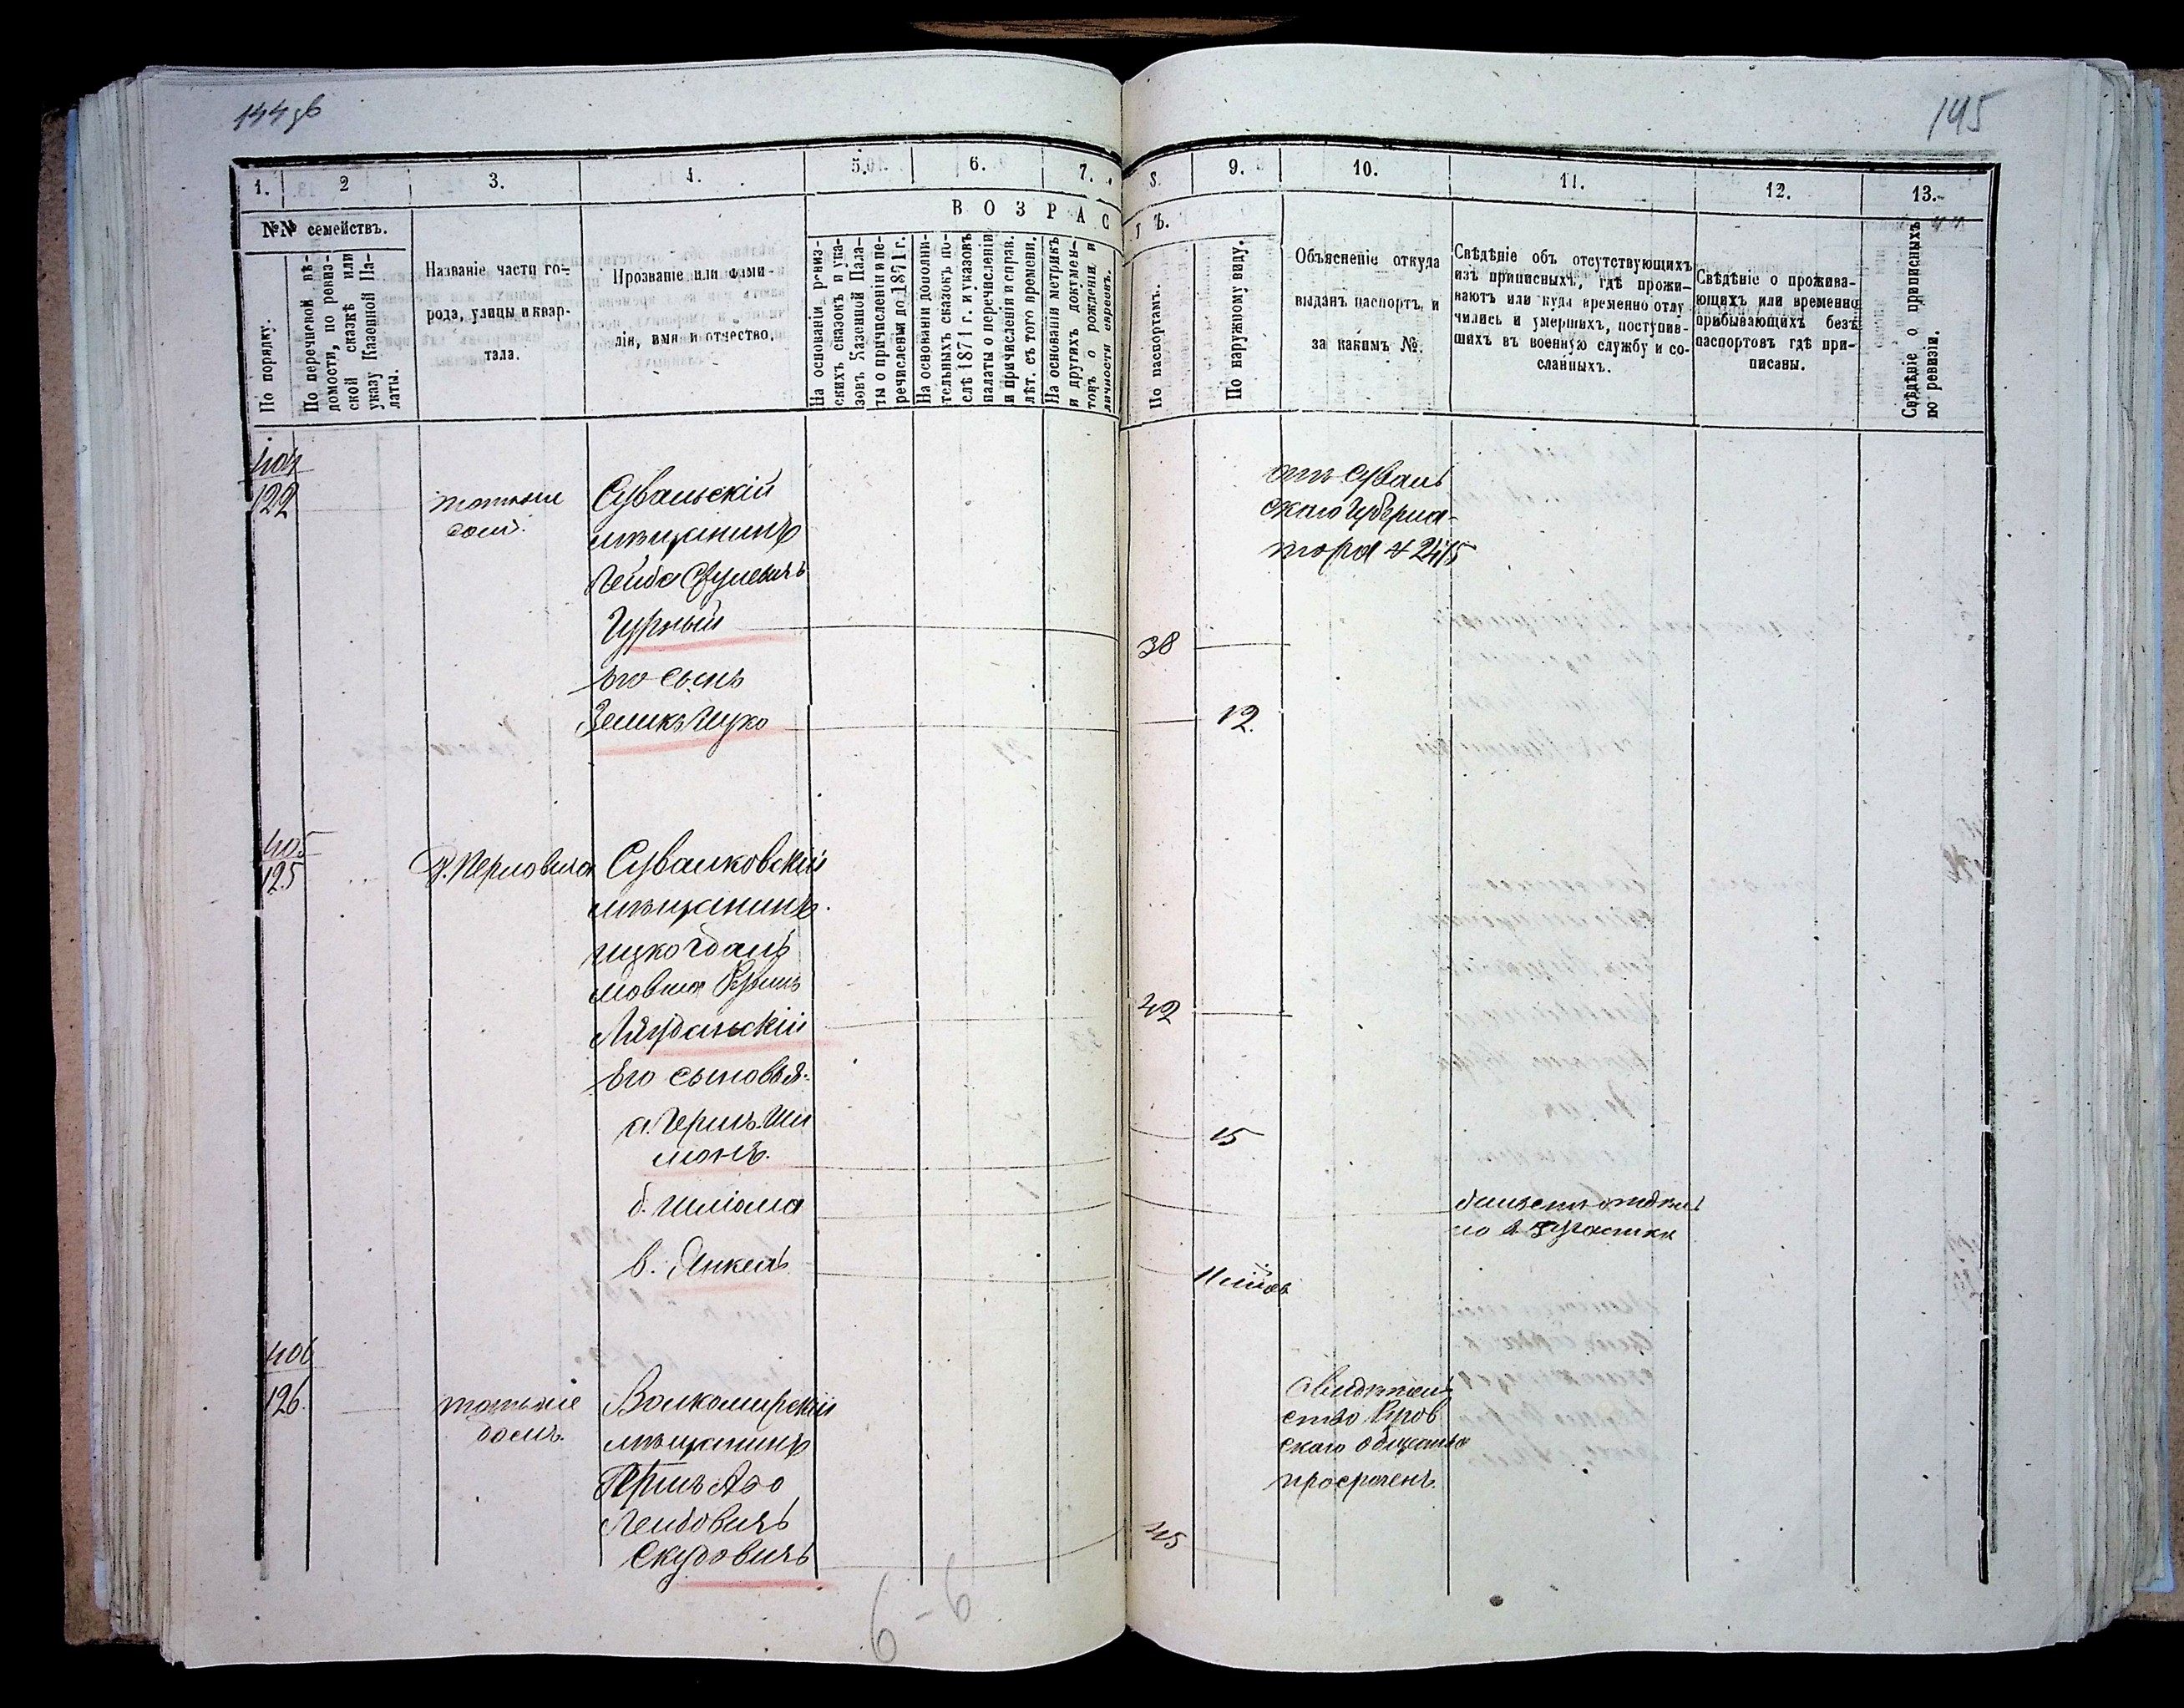 144 об
145
1.
2
3.
4.
5.
6.
7.
8.
9.
10.
11.
12.
13.
В О З Р А С Т Ъ.
№№ семействъ.
По порядку.
По перечневой вѣ-
домости, по ревиз-
ской сказкѣ или
указу Казенной Па-
латы.
Названіе части го-
рода, улицы и квар-
тала.
Прозваніе или фами-
лія, имя и отчество.
На основаніи ревиз-
скихъ сказокъ и ука-
зовъ Казенной Пала-
ты о причисленіи и пе-
речисленіи до 1871 г.
На основаніи дополни-
тельныхъ сказокъ по-
слѣ 1871 г. и указовъ
палаты о перечисленіи
и причисленіи и справ.
лѣт. съ того времени.
На основаніи метрикъ
и другихъ докумен-
товъ о рожденіи и
личности евреевъ.
По паспортамъ.
По наружному виду.
Объясненіе откуда
выданъ паспортъ, и
за какимъ №.
Свѣдѣніе объ отсутствующихъ
изъ приписныхъ, гдѣ прожи-
ваютъ или куда временно отлу
чились и умершихъ, поступив-
шихъ въ военную службу и со-
сланныхъ.
Свѣдѣніе о прожива-
ющихъ или временно
прибывающихъ безъ
паспортовъ гдѣ при-
писаны.
Свѣдѣніе о приписныхъ
по ревизіи.
404
122
домѣ.
Сувальскій
мѣщанинъ
Лейба
Гурный
38
его сынъ
Зеликъ Ицко
12.
отъ Суваль
скаго Губерна-
тора № 2415
405
125
Сувалковскій
мѣщанинъ.
Ицко
42
Его сыновья.
а. Гершъ Ши
монъ.
15
б. Шлiома
в. Янкель
406
126.
домъ.
Волкомирскій
мѣщанинъ
Гершъ
Лейбовичъ
Скудовичъ
45
Свидѣтель
ство
скаго общества
просроченъ.
6-6